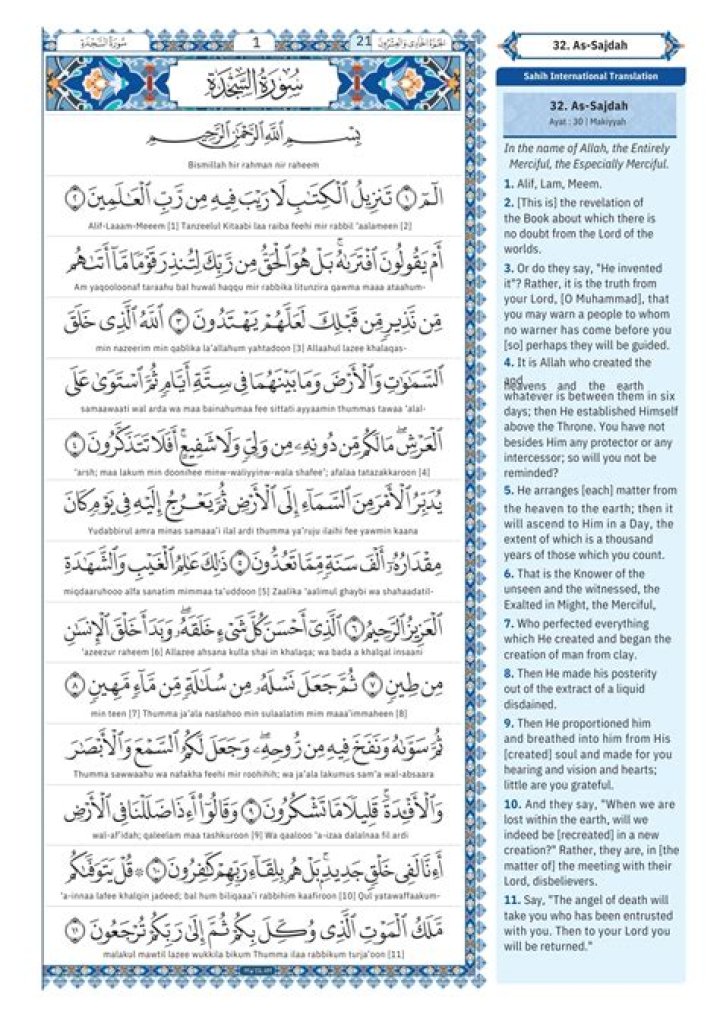 سُورَةُ السَّجْدَةِ
1
21
الجُزْءُ الحَادِي وَالعِشْرُونَ
سُورَةُ السَّجْدَةِ
بِسْمِ اللَّهِ الرَّحْمَٰنِ الرَّحِيمِ
Bismillah hir rahman nir raheem
الٓمٓ ١ تَنزِيلُ ٱلْكِتَٰبِ لَا رَيْبَ فِيهِ مِن رَّبِّ ٱلْعَٰلَمِينَ ٢
Alif-Laaam-Meeem [1] Tanzeelul Kitaabi laa raiba feehi mir rabbil 'aalameen [2]
أَمْ يَقُولُونَ ٱفْتَرَىٰهُ ۚ بَلْ هُوَ ٱلْحَقُّ مِن رَّبِّكَ لِتُنذِرَ قَوْمًا مَّآ أَتَىٰهُم
Am yaqooloonaf taraahu bal huwal haqqu mir rabbika litunzira qawma maaa ataahum-
مِّن نَّذِيرٍ مِّن قَبْلِكَ لَعَلَّهُمْ يَهْتَدُونَ ٣ ٱللَّهُ ٱلَّذِى خَلَقَ
min nazeerim min qablika la'allahum yahtadoon [3] Allaahul lazee khalaqas-
ٱلسَّمَٰوَٰتِ وَٱلْأَرْضَ وَمَا بَيْنَهُمَا فِى سِتَّةِ أَيَّامٍ ثُمَّ ٱسْتَوَىٰ عَلَى
samaawaati wal arda wa maa bainahumaa fee sittati ayyaamin thummas tawaa 'alal-
ٱلْعَرْشِ ۖ مَا لَكُم مِّن دُونِهِۦ مِن وَلِىٍّ وَلَا شَفِيعٍ ۚ أَفَلَا تَتَذَكَّرُونَ ٤
'arsh; maa lakum min doonihee minw-waliyyinw-wala shafee'; afalaa tatazakkaroon [4]
يُدَبِّرُ ٱلْأَمْرَ مِنَ ٱلسَّمَآءِ إِلَى ٱلْأَرْضِ ثُمَّ يَعْرُجُ إِلَيْهِ فِى يَوْمٍ كَانَ
Yudabbirul amra minas samaaa'i ilal ardi thumma ya'ruju ilaihi fee yawmin kaana
مِقْدَارُهُۥٓ أَلْفَ سَنَةٍ مِّمَّا تَعُدُّونَ ٥ ذَٰلِكَ عَٰلِمُ ٱلْغَيْبِ وَٱلشَّهَٰدَةِ
miqdaaruhooo alfa sanatim mimmaa ta'uddoon [5] Zaalika 'aalimul ghaybi wa shahaadatil-
ٱلْعَزِيزُ ٱلرَّحِيمُ ٦ ٱلَّذِىٓ أَحْسَنَ كُلَّ شَىْءٍ خَلَقَهُۥ ۖ وَبَدَأَ خَلْقَ ٱلْإِنسَٰنِ
'azeezur raheem [6] Allazee ahsana kulla shai in khalaqa; wa bada a khalqal insaani
مِن طِينٍ ٧ ثُمَّ جَعَلَ نَسْلَهُۥ مِن سُلَٰلَةٍ مِّن مَّآءٍ مَّهِينٍ ٨
min teen [7] Thumma ja'ala naslahoo min sulaalatim mim maaa'immaheen [8]
ثُمَّ سَوَّىٰهُ وَنَفَخَ فِيهِ مِن رُّوحِهِۦ ۖ وَجَعَلَ لَكُمُ ٱلسَّمْعَ وَٱلْأَبْصَٰرَ
Thumma sawwaahu wa nafakha feehi mir roohihih; wa ja'ala lakumus sam'a wal-absaara
وَٱلْأَفْـِٔدَةَ ۚ قَلِيلًا مَّا تَشْكُرُونَ ٩ وَقَالُوٓا۟ أَءِذَا ضَلَلْنَا فِى ٱلْأَرْضِ
wal-af'idah; qaleelam maa tashkuroon [9] Wa qaalooo 'a-izaa dalalnaa fil ardi
أَءِنَّا لَفِى خَلْقٍ جَدِيدٍۭ ۚ بَلْ هُم بِلِقَآءِ رَبِّهِمْ كَٰفِرُونَ ١٠ ۞ قُلْ يَتَوَفَّىٰكُم
'a-innaa lafee khalqin jadeed; bal hum biliqaaa'i rabbihim kaafiroon [10] Qul yatawaffaakum-
مَّلَكُ ٱلْمَوْتِ ٱلَّذِى وُكِّلَ بِكُمْ ثُمَّ إِلَىٰ رَبِّكُمْ تُرْجَعُونَ ١١
malakul mawtil lazee wukkila bikum Thumma ilaa rabbikum turja'oon [11]
32. As-Sajdah
Sahih International Translation
32. As-Sajdah
Ayat : 30 | Makiyyah
In the name of Allah, the Entirely
Merciful, the Especially Merciful.
1. Alif, Lam, Meem.
2. [This is] the revelation of
the Book about which there is
no doubt from the Lord of the
worlds.
3. Or do they say, "He invented
it"? Rather, it is the truth from
your Lord, [O Muhammad], that
you may warn a people to whom
no warner has come before you
[so] perhaps they will be guided.
4. It is Allah who created the
and
heavens and the earth
whatever is between them in six
days; then He established Himself
above the Throne. You have not
besides Him any protector or any
intercessor; so will you not be
reminded?
5. He arranges [each] matter from
the heaven to the earth; then it
will ascend to Him in a Day, the
extent of which is a thousand
years of those which you count.
6. That is the Knower of the
unseen and the witnessed, the
Exalted in Might, the Merciful,
7. Who perfected everything
which He created and began the
creation of man from clay.
8. Then He made his posterity
out of the extract of a liquid
disdained.
9. Then He proportioned him
and breathed into him from His
[created] soul and made for you
hearing and vision and hearts;
little are you grateful.
10. And they say, "When we are
lost within the earth, will we
indeed be [recreated] in a new
creation?" Rather, they are, in [the
matter of] the meeting with their
Lord, disbelievers.
11. Say, "The angel of death will
take you who has been entrusted
with you. Then to your Lord you
will be returned."